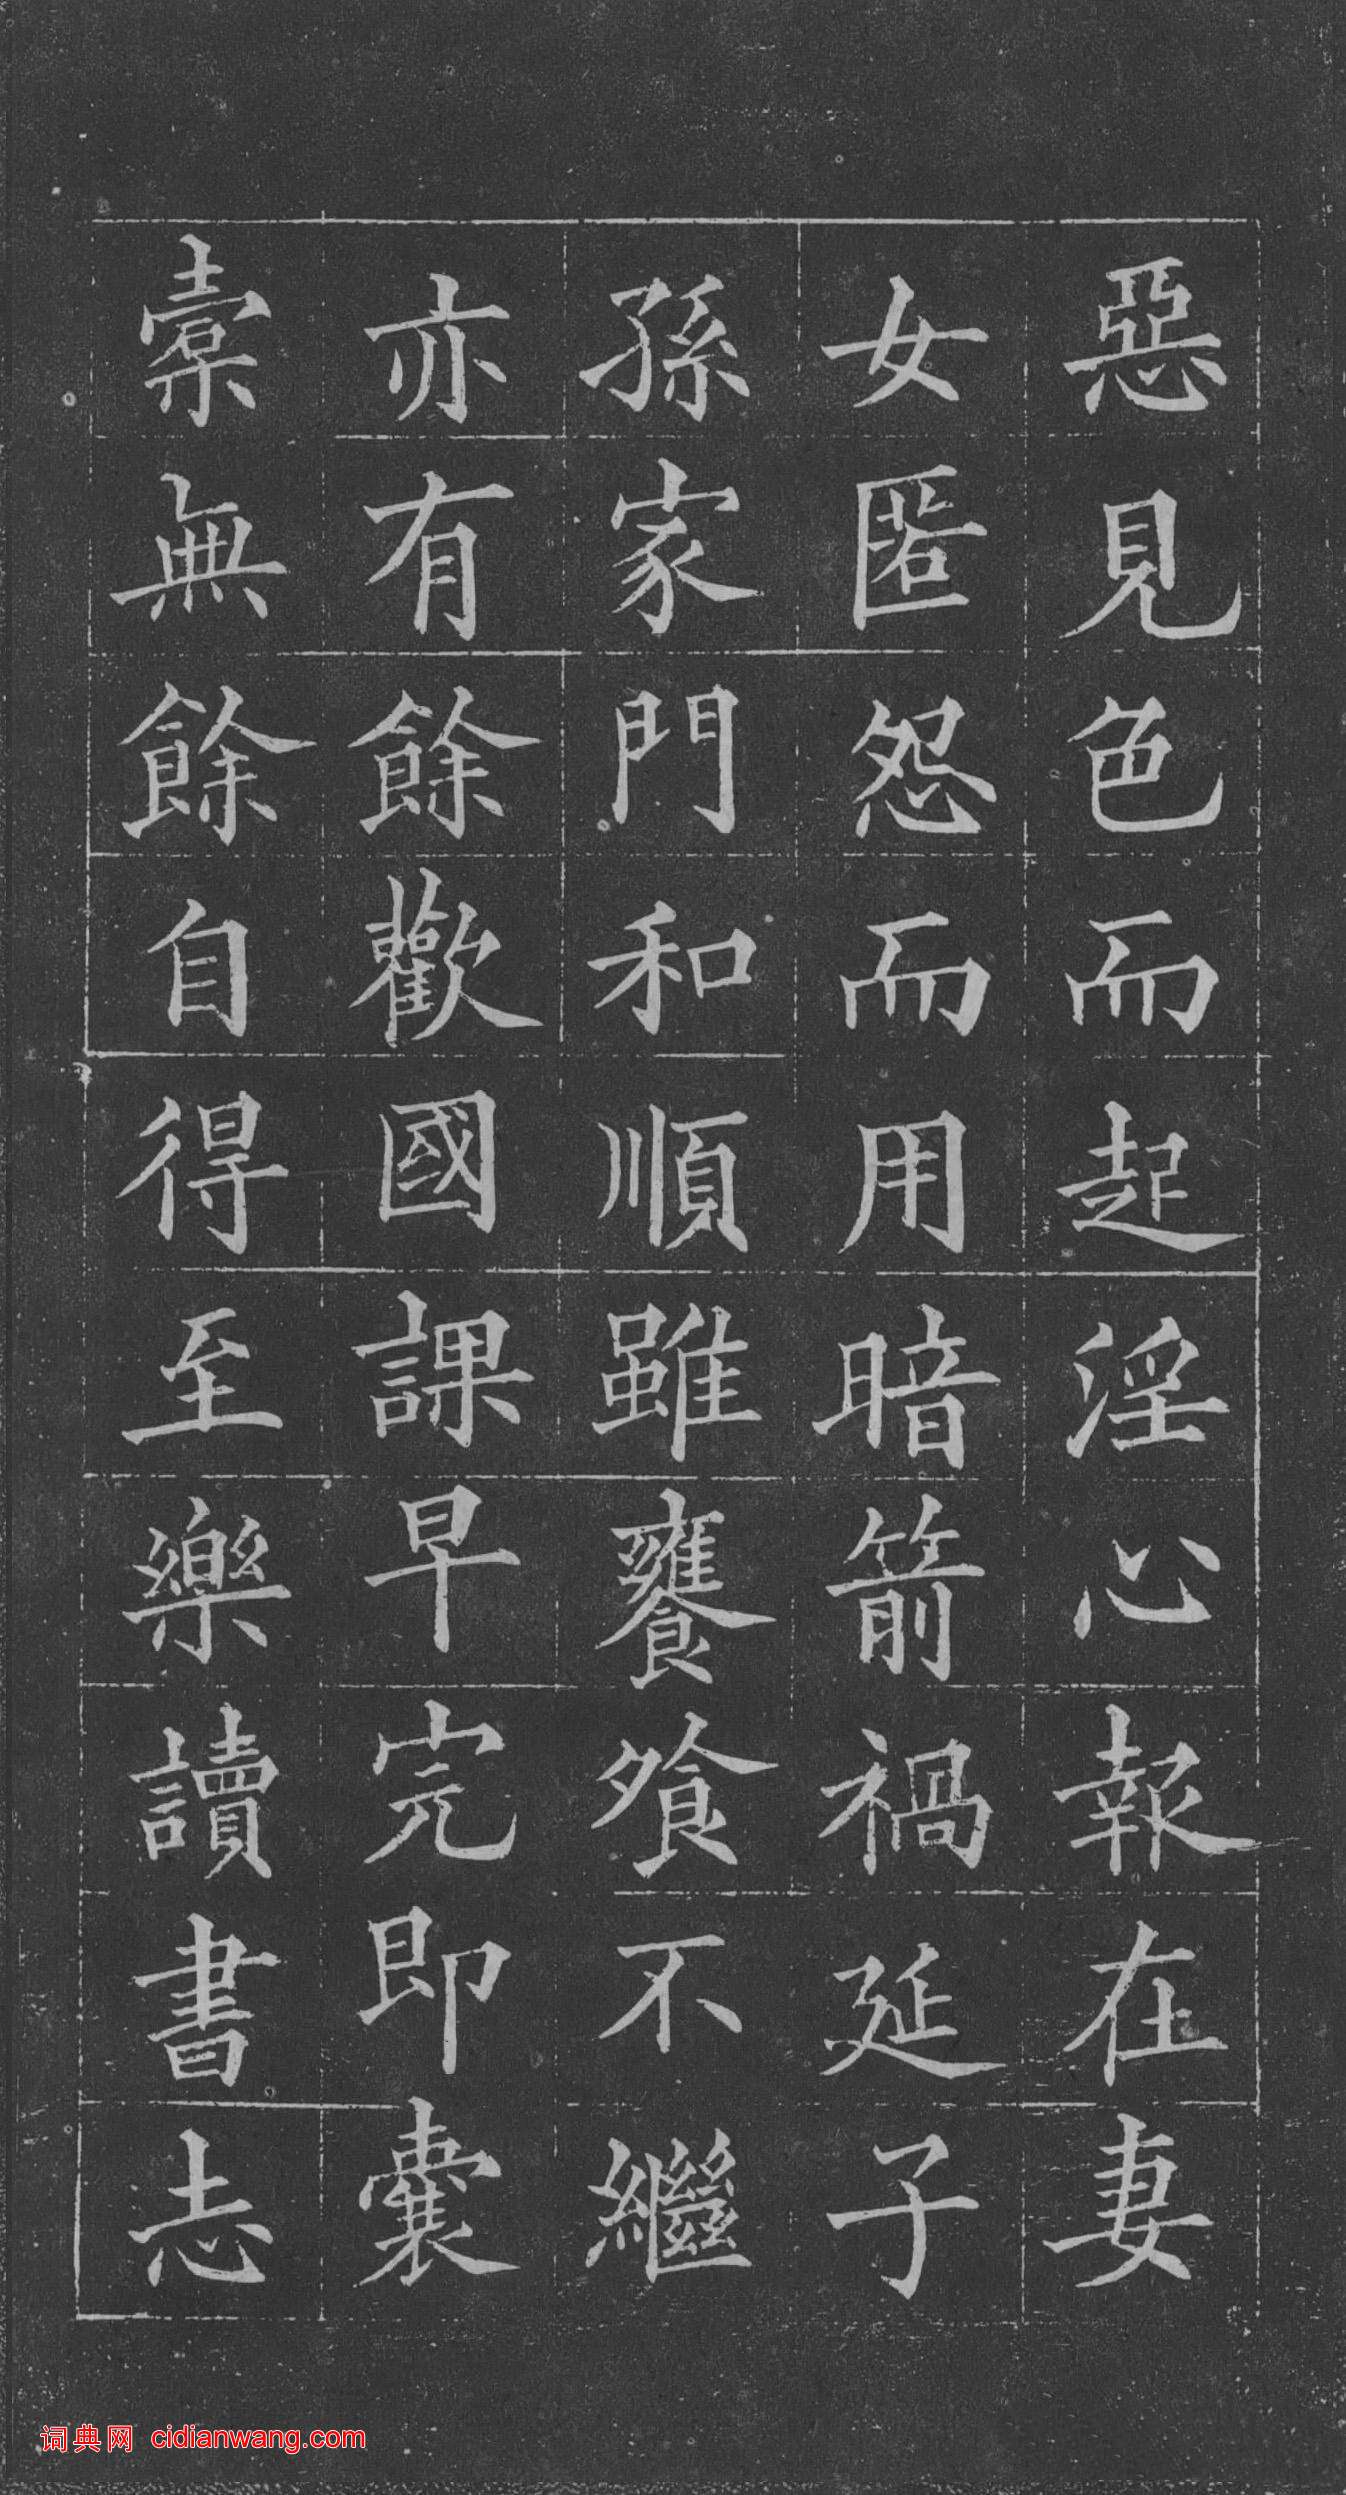 惡見色而起淫心報在妻
女匿怨而用暗箭禍延子
孫家門和順雖饔飧不繼
亦有餘歡國課早完即囊
橐無餘自得至樂讀書志
词典网 cidianwang.com